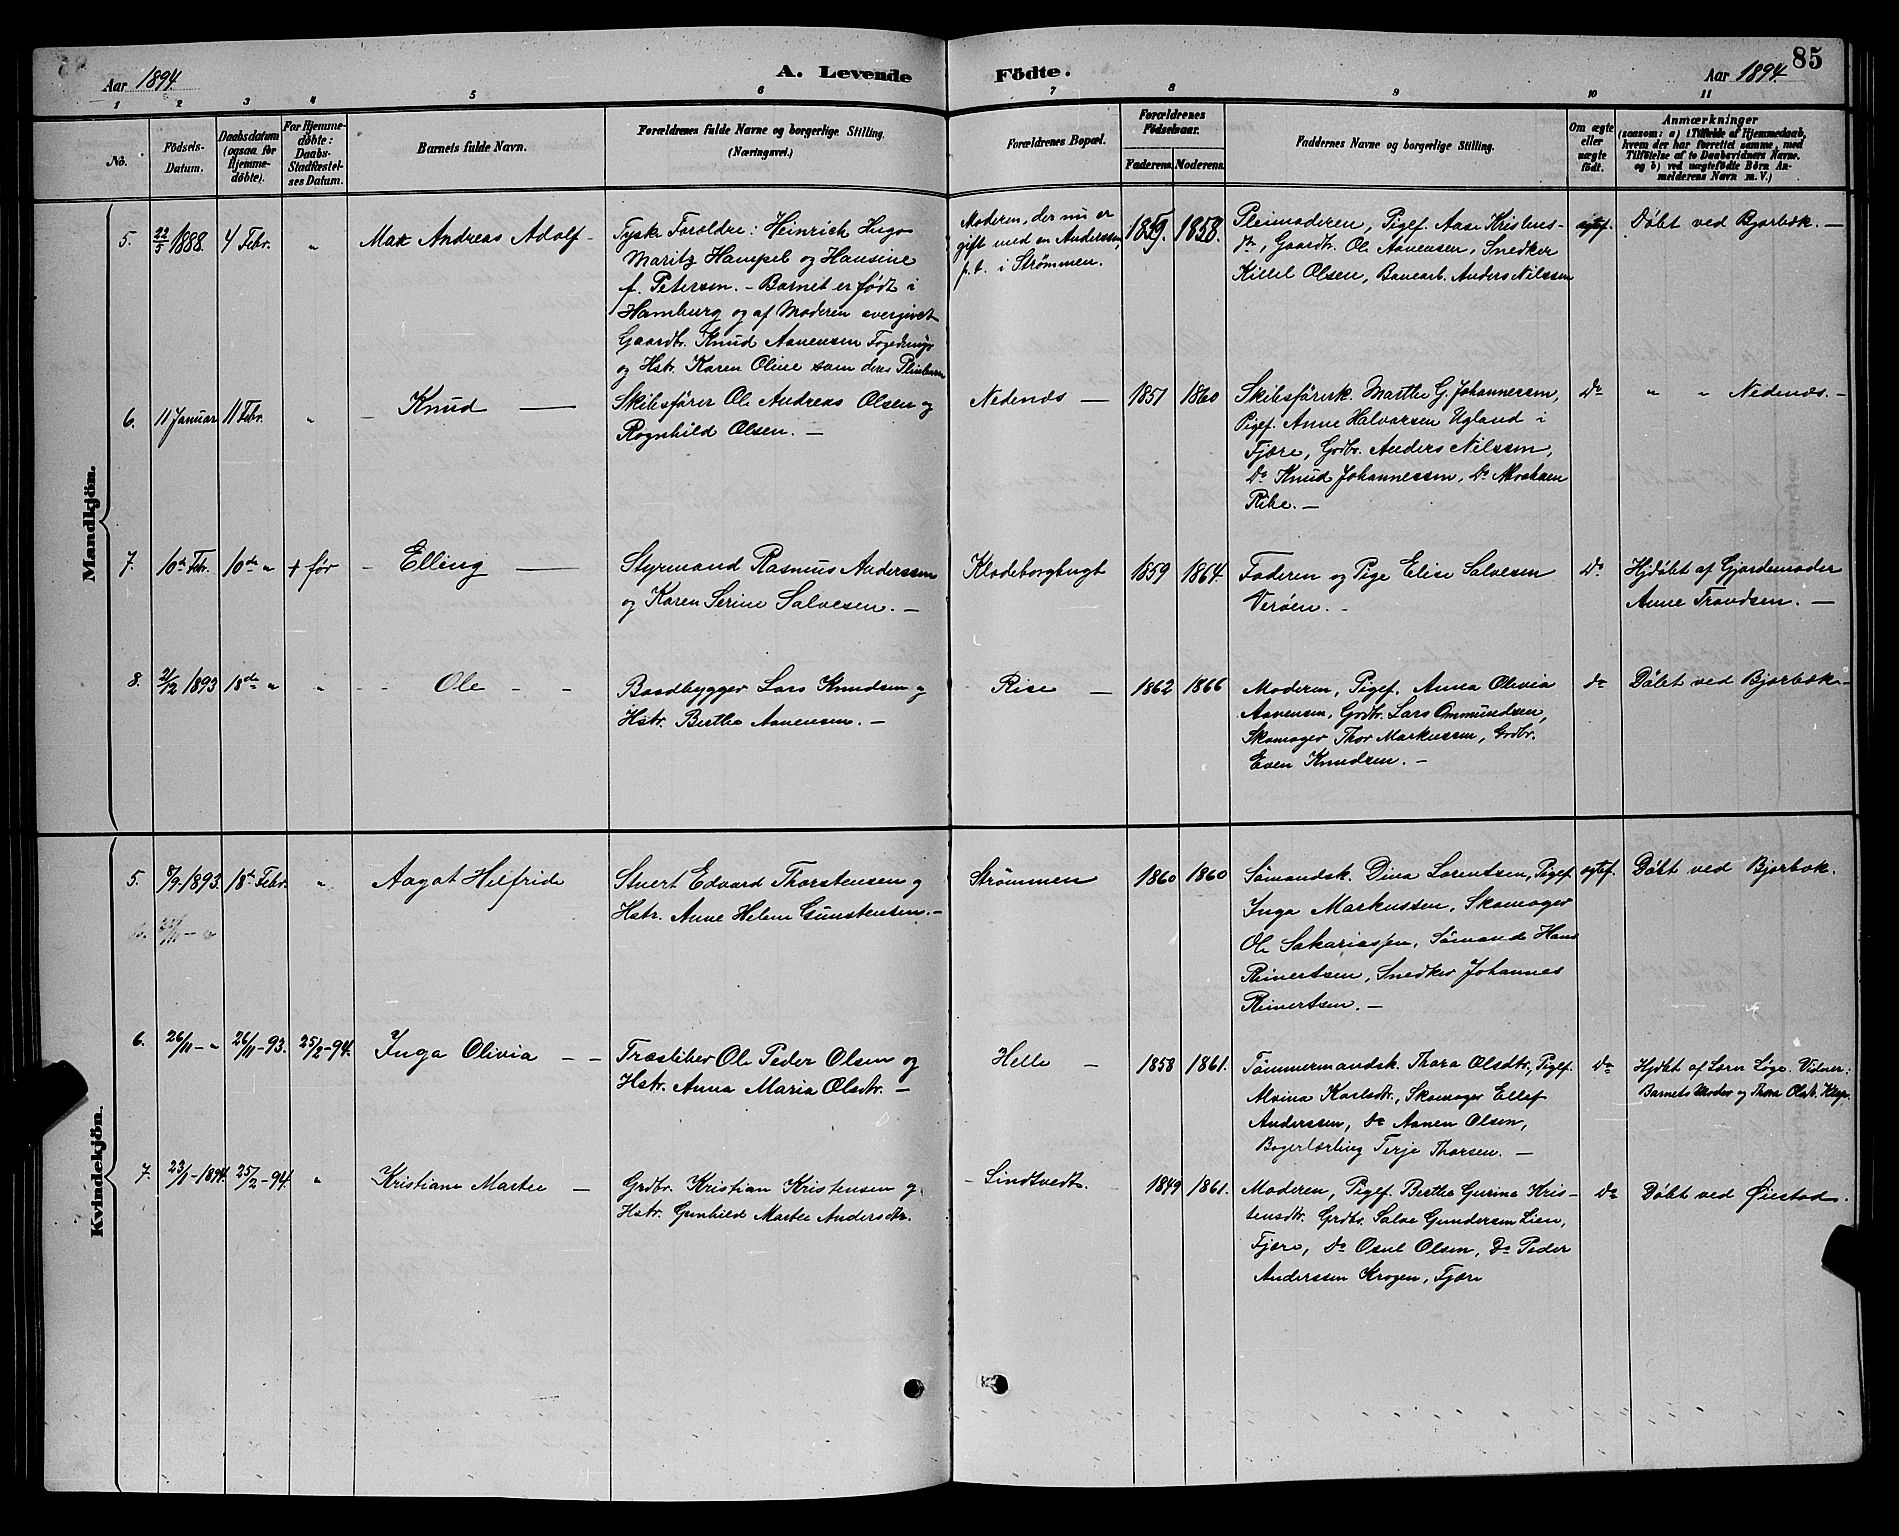 85
Aar 1894.
A. Levende Födte.
Aar 1894.
1 2 3 4 5 6 7 8 9 10 11
No.
Födsels-
Datum.
Daabsdatum
(ogsaa for
Hjemme-
döbte).
For Hjemme-
döbte:
Daabs-
Stadfæstel-
ses Datum.
Barnets fulde Navn.
Forældrenes fulde Navne og borgerlige Stilling.
(Næringsvei.)
Forældrenes Bopæl.
Forældrenes
Födselsaar.
Faderens. Moderens.
Faddernes Navne og borgerlige Stilling.
Om ægte
eller
uægte
födt.
Anmærkninger
(saasom: a) i Tilfælde af Hjemmedaab,
hvem der har forrettet samme, med
Tilföielse af to Daabsvidners Navne.
og b) ved uægtefödte Börn An-
melderens Navn m. V.)
Mandkjön.
5. 22/5 1888. 4 Febr. " Max Andreas Adolf –
Tyske Foræ­ldre: Heinrich Hugo
Maritz Hampel og Hansine
f. Petersen. – Barnet er født i
Hamburg og af Moderen overgivet
Gaardbr. Knud Aanensen
og Hstr. Karen Oline som deres Pleiebarn
Moderen, der nu er
gift med en Anderssen,
p. t. i Strømmen.
1859. 1858.
Pleimoderen, Pigef. Aase Kristens-
dtr, Gaardbr. Ole Aanensen, Snedker
Kittel Olsen, Banearb. Anders Nilssen
ægtef.
Døbt ved Bjorbæk. –
6. 11 Januar 11 Febr. " – Knud –
Skibsfører Ole Andreas Olsen og
Rognhild Olsen. –
Nedenæs –
1851 1860
Skibsførerk. Marthe G. Johannessen,
Pigef. Anne Halvorsen Ugland i
Fjære, Grdbr. Anders Nilssen,
Do Knud Johannessen, Do Abraham
Ribe. –
Do " " Nedenæs. –
7. 10de Febr. 10de " + før – Elling –
Styrmand Rasmus Anderssen
og Karen Serine Salvesen. –
Klodeborgbugt
1859 1864
Faderen og Pige Elise Salvesen
Verøen. –
Do
Hjdøbt af Gjordemoder
Anne Trondsen. –
8. 2/12 1893 18de " " – Ole –
Baadbygger Lars Knudsen og
Hstr. Berthe Aanensen. –
Rise –
1862 1866
Moderen, Pigef. Anna Olivia
Aanensen, Grdbr. Lars Ommundsen,
Skomager Thor Markussen, Grdbr.
Even Knudsen. –
do Døbt ved Bjorbæk –
Kvindekjön.
5. 8/9 1893. 18de Febr. " Aagot Hilfride
Stuert Edvard Thorstensen og
Hstr. Anne Helene Gunstensen. –
Strømmen
1860 1860
Sømandsk. Dina Lorentsen, Pigef.
Inga Markussen, Skomager
Ole Sakariassen, Sømand Hans
Reinertsen, Snedker Johannes
Reinertsen. –
ægtef. Døbt ved Bjorbæk.
6. 26/11 – " 26/11 – 93. 25/2 – 94. Inga Olivia – –
Træsliber Ole Peder Olsen og
Hstr. Anna Maria Olsdtr. –
Helle –
1858 1861.
Tømmermandsk. Thora Olsdtr., Pigef.
Alvina Karlsdtr., Skomager Ellef
Anderssen, Do Aanen Olsen,
Bagerlærling Terje Thorsen. –
Do
Hjdøbt af Lærer Løge. Vidner:
Barnets Moder og Thora Olsdtr.
7. 23/1 – 1894. 25/2 – 94. " Kristiane Marthe –
Grdbr. Kristian Kristensen og
Hstr. Gunhild Marthe Andersdtr.
– Lindtvedt. –
1849 1861.
Moderen, Pigef. Berthe Gurine Kris-
tensdtr. Grdbr. Salve Gundersen Lien,
Fjære, Do Osul Olsen, Do Peder
Anderssen Krogen, Fjære
Do Døbt ved Øiestad.